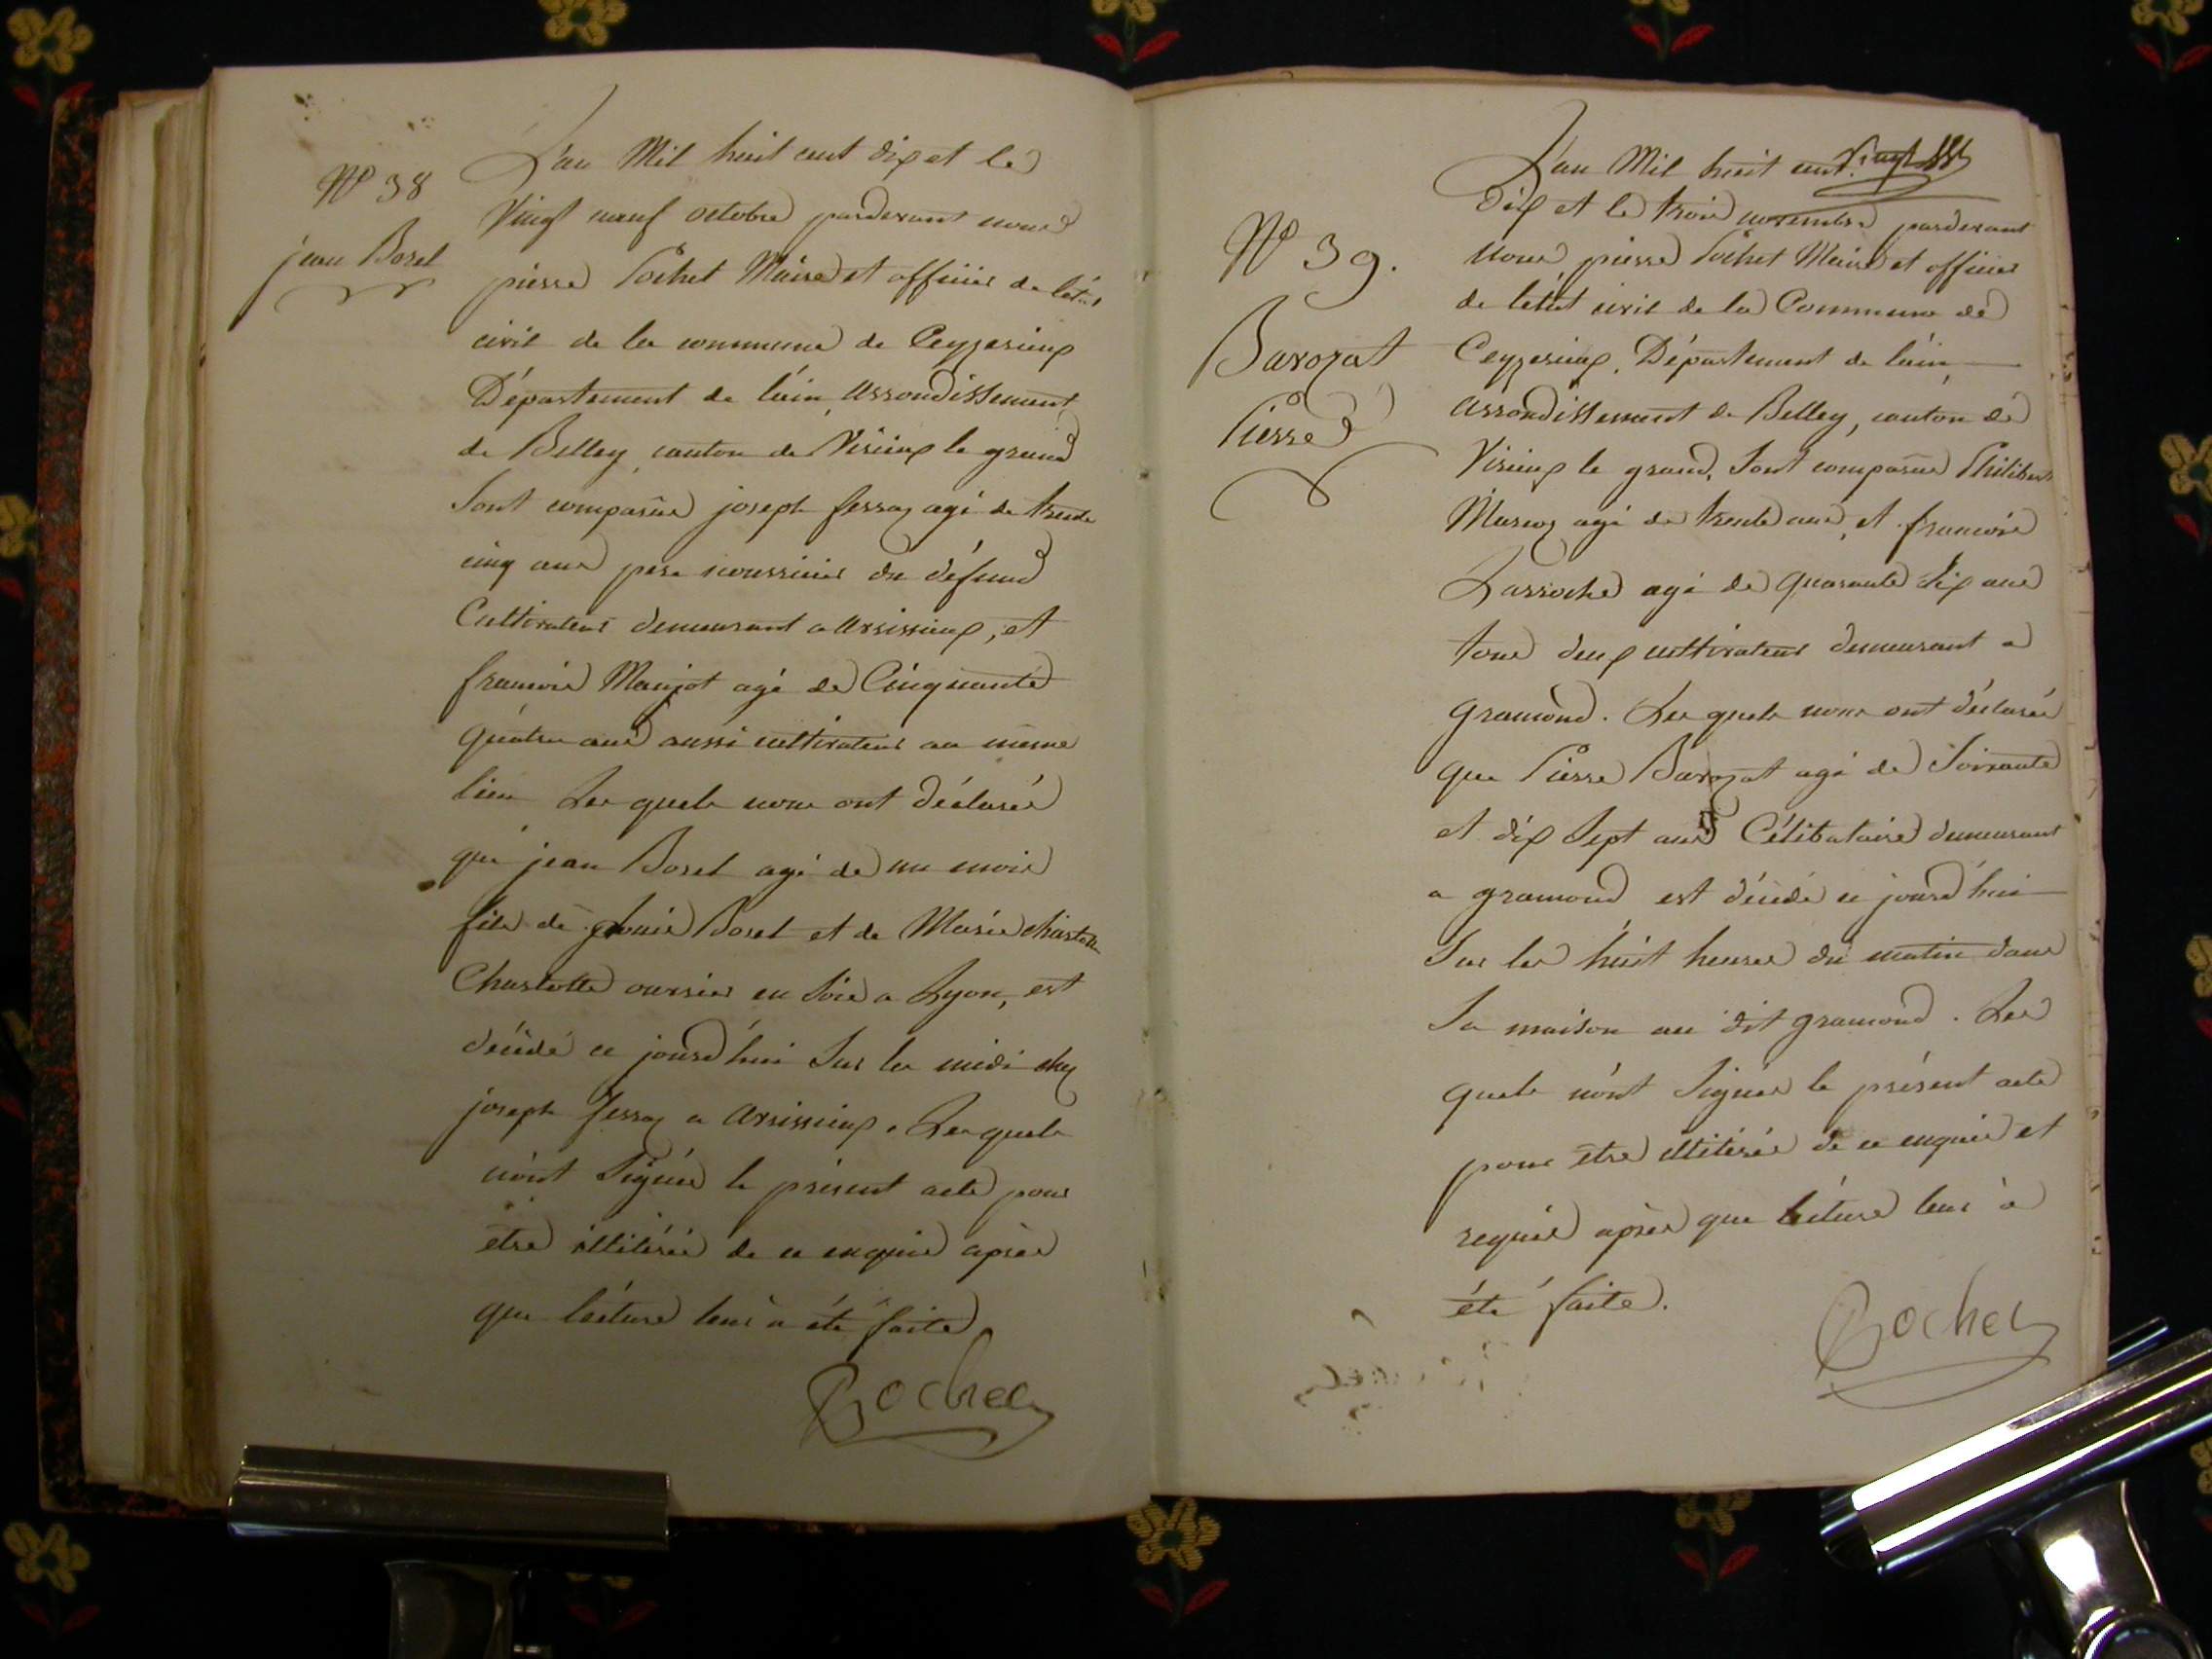 N° 38
jean Borel
L'an Mil huit cent dix et le
Vingt neuf octobre pardevant nous
pierre Pochet Maire et officier de l'état
civil de la commune de Ceyzerieux
Département de l'ain, arrondissement
de Belley, canton de Virieux le grand
Sont comparus joseph ferraz agé de trente
cinq ans pere nourricier du défund
Cultivateur demeurant a arvissieux, et
francois Manjot agé de Cinquante
quatre ans aussi cultivateur au meme
lieu Les quels nous ont déclarés
que jean Borel agé de un mois
fils de Borel et de Marie
Charlotte ouvrier en Soie a Lyon, est
décédé ce jourd'hui Sur les midi chez
joseph ferraz a arvissieux. Les quels
n'ont Signés le présent acte pour
etre illitérés de ce enquis après
que lécture leur à été faite
Pochet
N° 39.
Barozat
Pierre
L'an Mil huit cent
dix et le trois novembre pardevant
Nous pierre Pochet Maire et officier
de l'état civil de la Commune de
Ceyzerieux, Département de l'ain
arrondissement de Belley, canton de
Virieux le grand, Sont comparus Philibert
agé de trente ans, et francois
Larroche agé de quarante Six ans
tous deux cultivateurs demeurant a
gramond. Les quels nous ont déclarés
que Pierre Barozat agé de Soixante
et dix Sept ans Célibataire demeurant
a gramond est décédé ce jourd'hui
Sur les huit heures du matin dans
Sa maison au dit gramond. Les
quels n'ont Signés le présent acte
pour etre illitérés de ce enquis et
requis après que lécture leur à
été faite.
Pochet